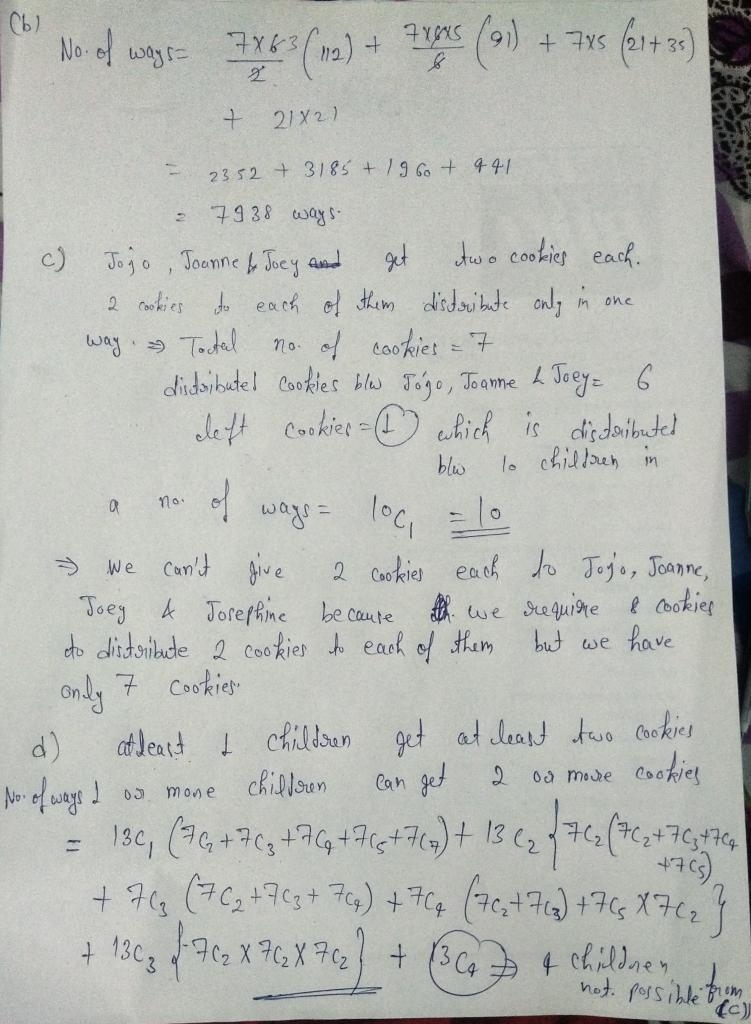 (b)
No. of ways = 7×6 3/2 (112) + 7×6×5/6 (91) + 7×5 (21+35)
+ 21×21
= 2352 + 3185 + 1960 + 441
= 7938 ways.
c) Jojo, Joanne & Joey and get two cookies each.
2 cookies to each of them distribute only in one
way. ⇒ Total no. of cookies = 7
distributed cookies b/w Jojo, Joanne & Joey = 6
left cookies = 1 which is distributed
b/w 10 children in
a no. of ways = 10C₁ = 10
⇒ We can't give 2 cookies each to Jojo, Joanne,
Joey & Josephine because we require 8 cookies
to distribute 2 cookies to each of them but we have
only 7 cookies.
d) atleast 1 children get at least two cookies
No. of ways 1 or more children can get 2 or more cookies
= 13C₁ (7C₂+7C₃+7C₄+7C₅+7C₇) + 13C₂ {7C₂(7C₂+7C₃+7C₄
+7C₅)
+ 7C₃ (7C₂+7C₃+7C₄) + 7C₄ (7C₂+7C₃) + 7C₅ × 7C₂ }
+ 13C₃ {7C₂ × 7C₂ × 7C₂} + 13C₄ ⇒ 4 children
not possible from
(c))